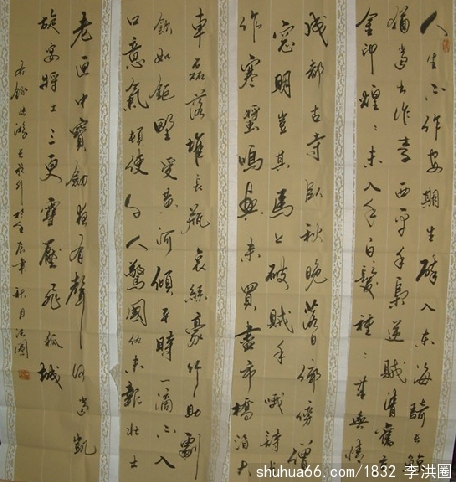 人生不作安期生醉入东海騎長鯨
猶當出作李西平手梟逆賊清舊京
金印煌〻未入手白髮種〻来無情
成都古寺臥秋晚落日偏傍僧
窓明豈其馬上破賊手哦詩長
作寒螿鳴興来買盡市橋酒大
車磊落堆長瓶哀絲豪竹助劇
飲如鉅野受黄河傾平時一滴不入
口意氣頓使千人驚國仇未報壮士
老匣中寶劍夜有聲何當凱
旋宴將士三更雪壓飛狐城
秋月洪圈
shuhua66.com/1832 李洪圈